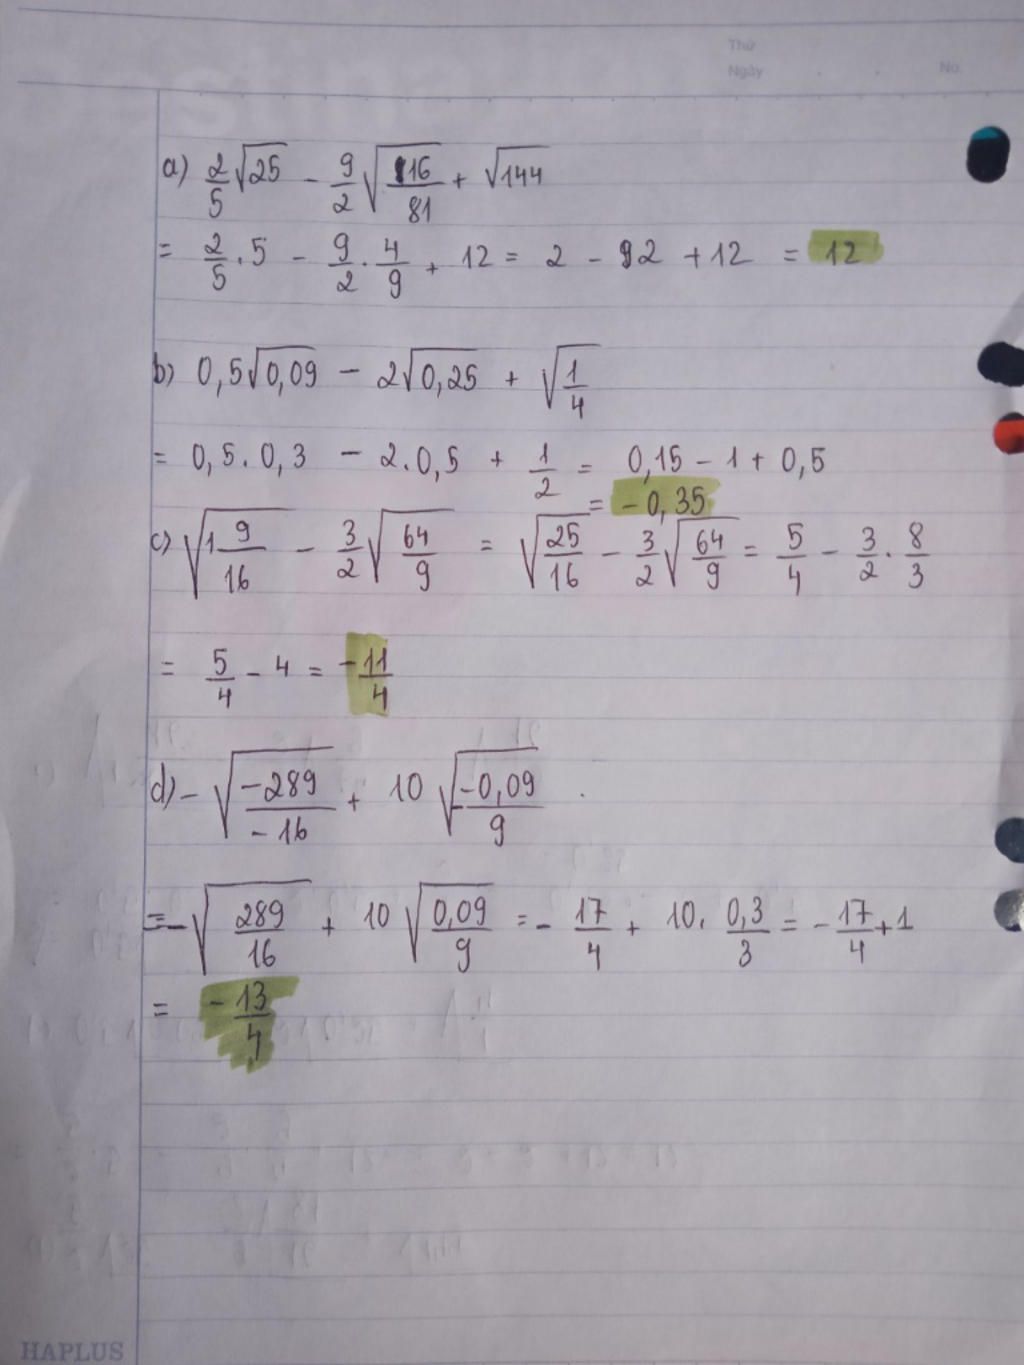 Thứ
Ngày No
a) 2/5 √25 - 9/2 √(16/81) + √144
= 2/5 . 5 - 9/2 . 4/9 + 12 = 2 - 2 + 12 = 12
b) 0,5√0,09 - 2√0,25 + √(1/4)
= 0,5 . 0,3 - 2 . 0,5 + 1/2 = 0,15 - 1 + 0,5
= -0,35
c) √(1 9/16) - 3/2 √(64/9) = √(25/16) - 3/2 √(64/9) = 5/4 - 3/2 . 8/3
= 5/4 - 4 = -11/4
d) - √(-289/-16) + 10 √(-0,09/-9)
= - √(289/16) + 10 √(0,09/9) = - 17/4 + 10 . 0,3/3 = - 17/4 + 1
= -13/4
HAPLUS